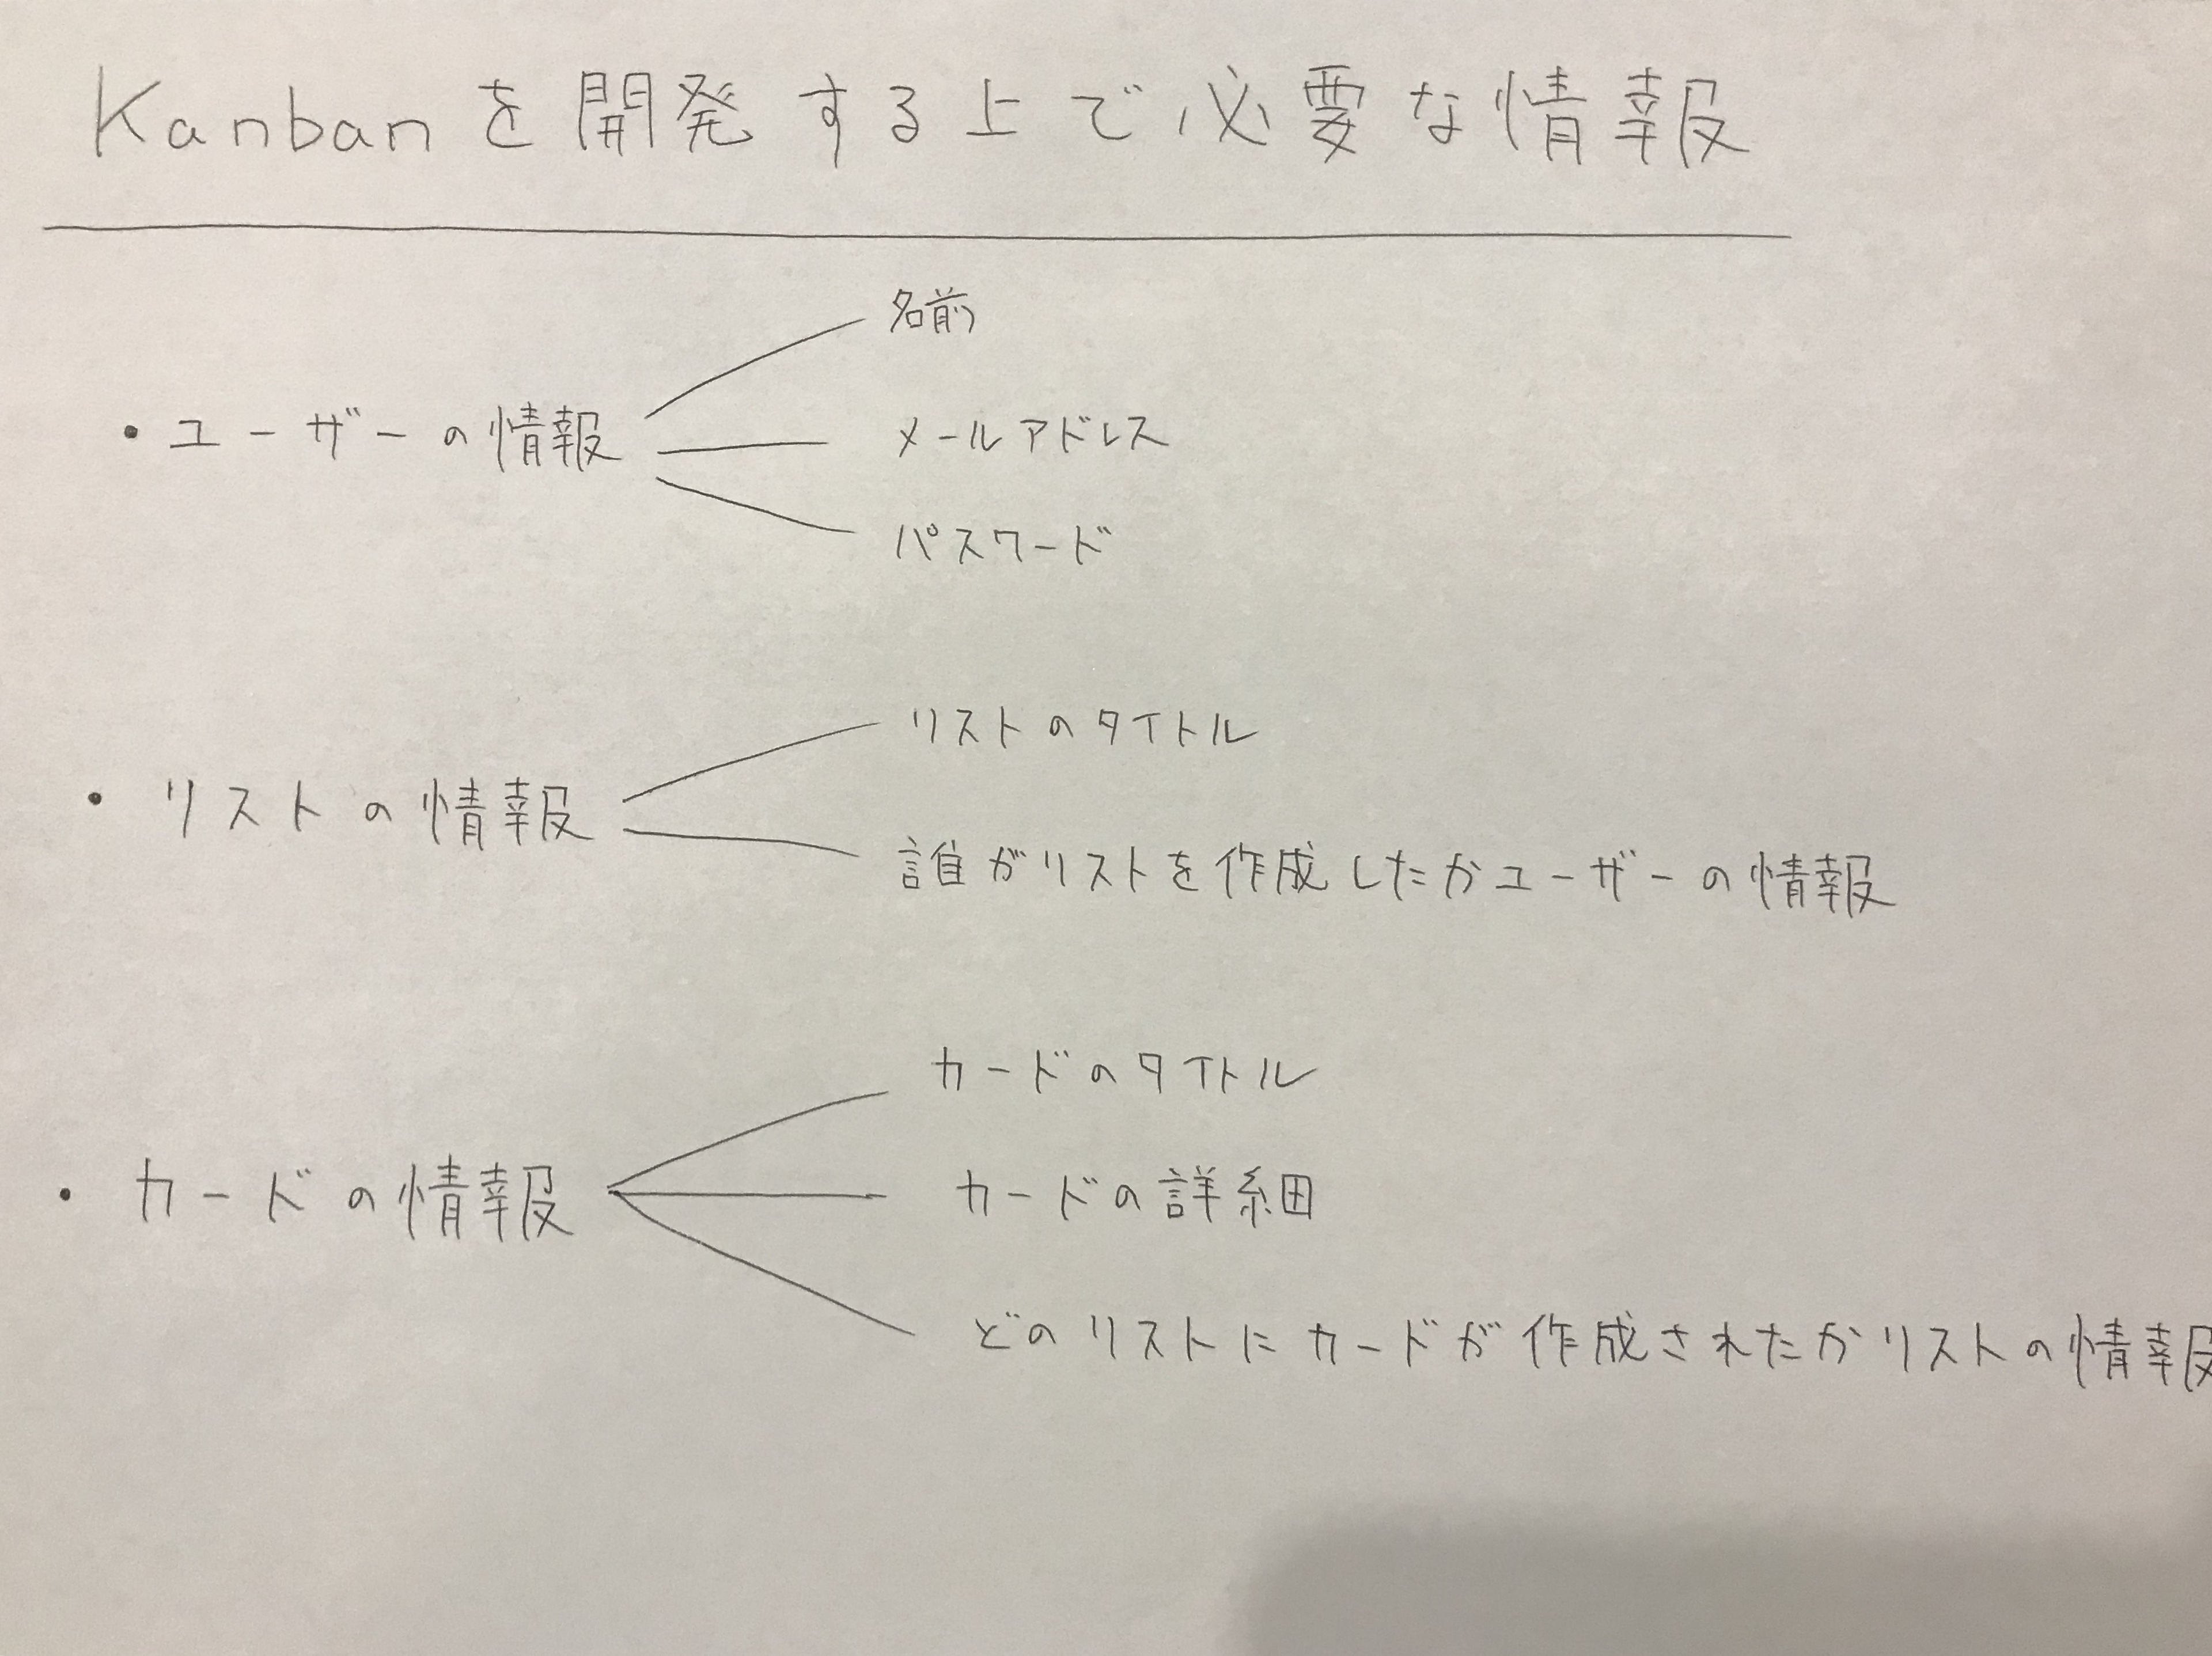 Kanbanを開発する上で必要な情報
名前
・ユーザーの情報
メールアドレス
パスワード
リストのタイトル
・リストの情報
誰がリストを作成したかユーザーの情報
カードのタイトル
・カードの情報
カードの詳細
どのリストにカードが作成されたかリストの情報